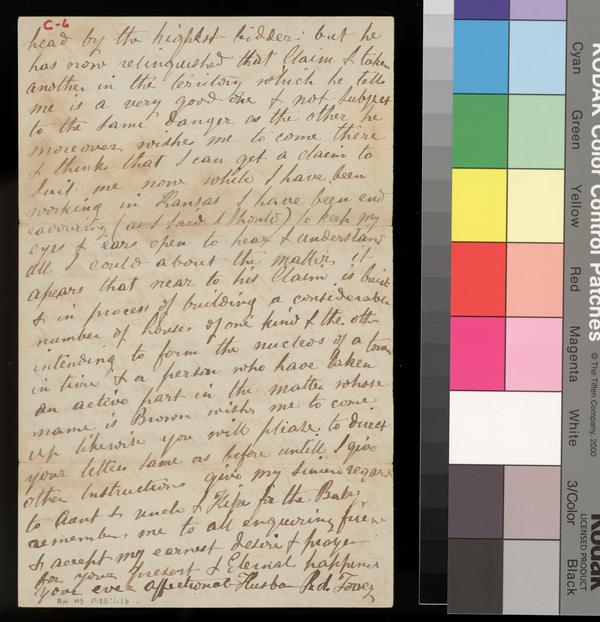 C-6
head by the highest bidder: but he
has now relinquished that Claim & taken
another in the territory which he tells
me is a very good one & not Subject
to the same danger as the other he
moreover wishes me to come there
& thinks that I can get a claim to
Suit me now while I have been
working in Kansas I have been end
eavouring (as I said I Should) to keep my
eyes & ears open to hear & understand
all I could about the matter, it
apears that near to his Claim is built
& in process of building a considerable
number of houses of one kind & the oth
intending to form the nucleos of a town
in time & a person who have taken
an active part in the matter whose
name is Brown wishes me to come
up likewise you will please to direct
your letters same as before untill I give
other Instructions give my sincere regard
to Aunt & Kiss for the Baby
remember me to all enquiring
& accept my earnest desire & prayer
for your present & Eternal happiness
your ever affectionat Husban
RH MS P185:1.16
KODAK Color Control Patches
© The Tiffen Company, 2000
Kodak
LICENSED PRODUCT
Cyan
Green
Yellow
Red
Magenta
White
3/Color
Black